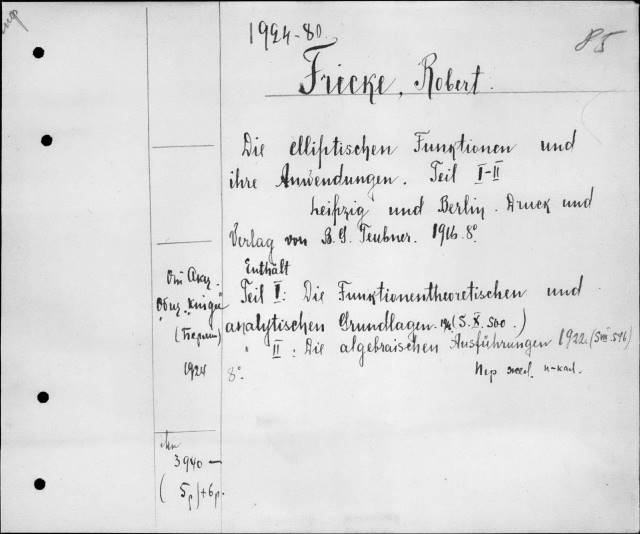 1924-80.
85
Fricke, Robert.
Die elliptischen Funktionen und
ihre Anwendungen. Teil I-II
Leipzig und Berlin. Druck und
Verlag von B. G. Teubner. 1916. 8°.
Enthält
Teil I: Die Funktionentheoretischen und
analytischen Grundlagen. (S. X. 500.)
" II: Die algebraischen Ausführungen 1922. (S. VIII. 546)
8°.
От Акц.
Общ. "Книга"
(Берлин)
1924
3940 —
(5р) + 6р.